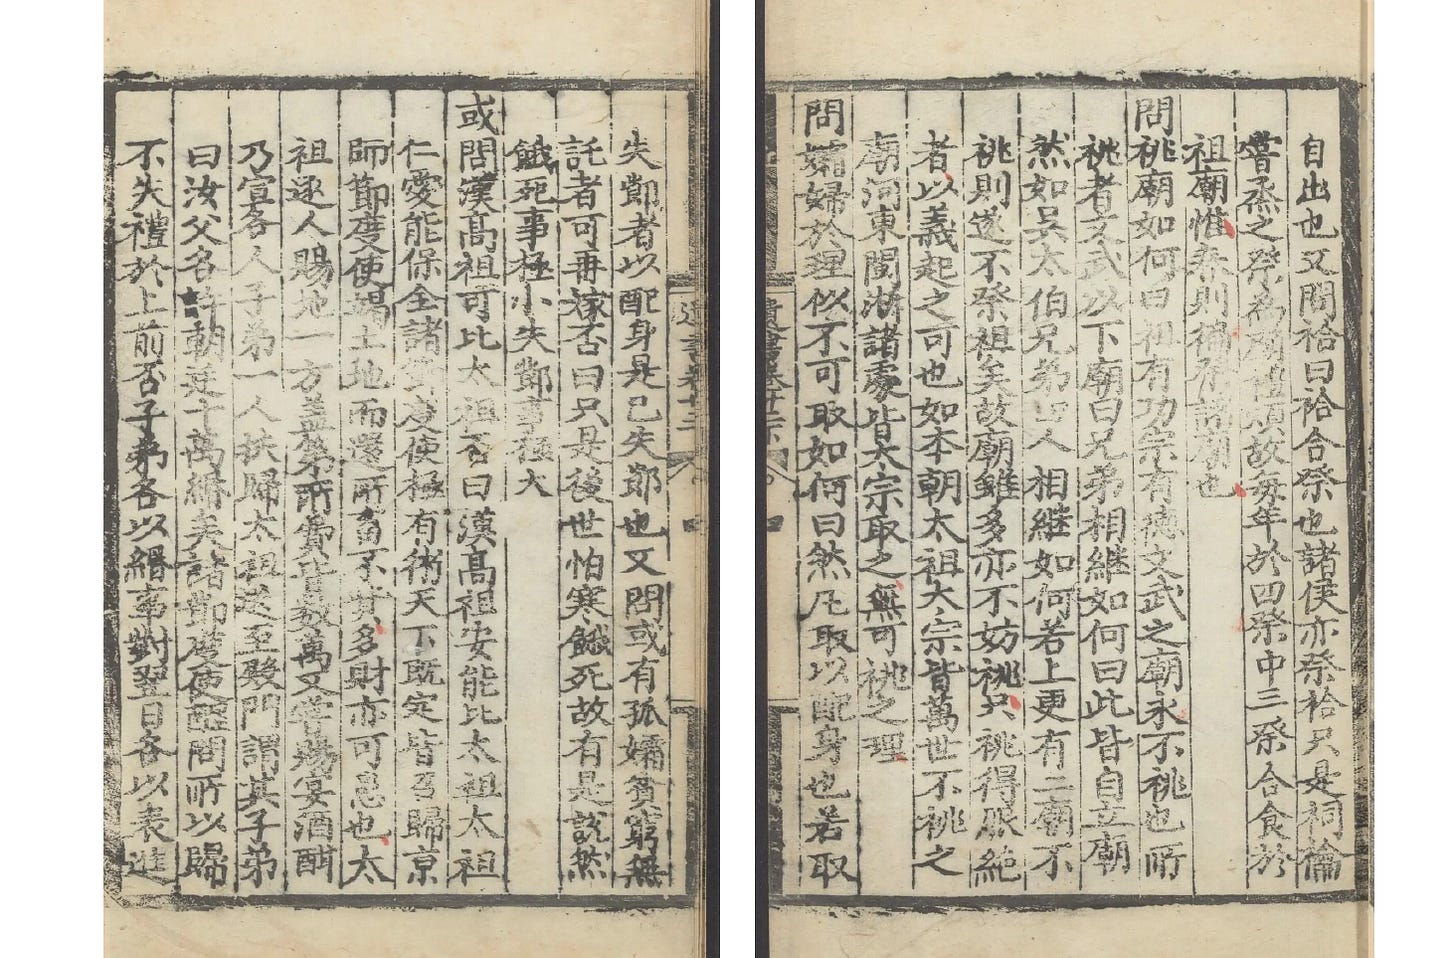 自出也又問祫曰祫合祭也諸侯亦祭祫只是祠禴
嘗烝之祭為廟禮煩故每年於四祭中三祭合食於
祖廟惟春則徧祭諸廟也
問祧廟如何曰祖有功宗有德文武之廟永不祧也所
祧者文武以下廟曰兄弟相継如何曰此皆自立廟
然如吳太伯兄弟四人相継如何若上更有二廟不
祧則遂不祭祖矣故廟雖多亦不妨祧只祧得服絶
者以義起之可也如本朝太祖太宗皆萬世不祧之
廟河東閩浙諸處皆太宗取之無可祧之理
問孀婦於理似不可取如何曰然凡取以配身也若取
遺書卷廿二下
四
失節者以配身是己失節也又問或有孤孀貧窮無
託者可再嫁否曰只是後世怕寒餓死故有是說然
餓死事極小失節事極大
或問漢高祖可比太祖否曰漢高祖安能比太祖太祖
仁愛能保全諸節度使極有術天下既定皆召歸京
師節度使竭土地而還所畜不貲多財亦可患也太
祖逐人賜地一方蓋第所費皆數萬又嘗賜宴酒酣
乃宣各人子弟一人扶歸太祖送至殿門謂其子弟
曰汝父各許朝廷十萬緡矣諸節度使醒問所以歸
不失禮於上前否子弟各以緡事對翌日各以表進